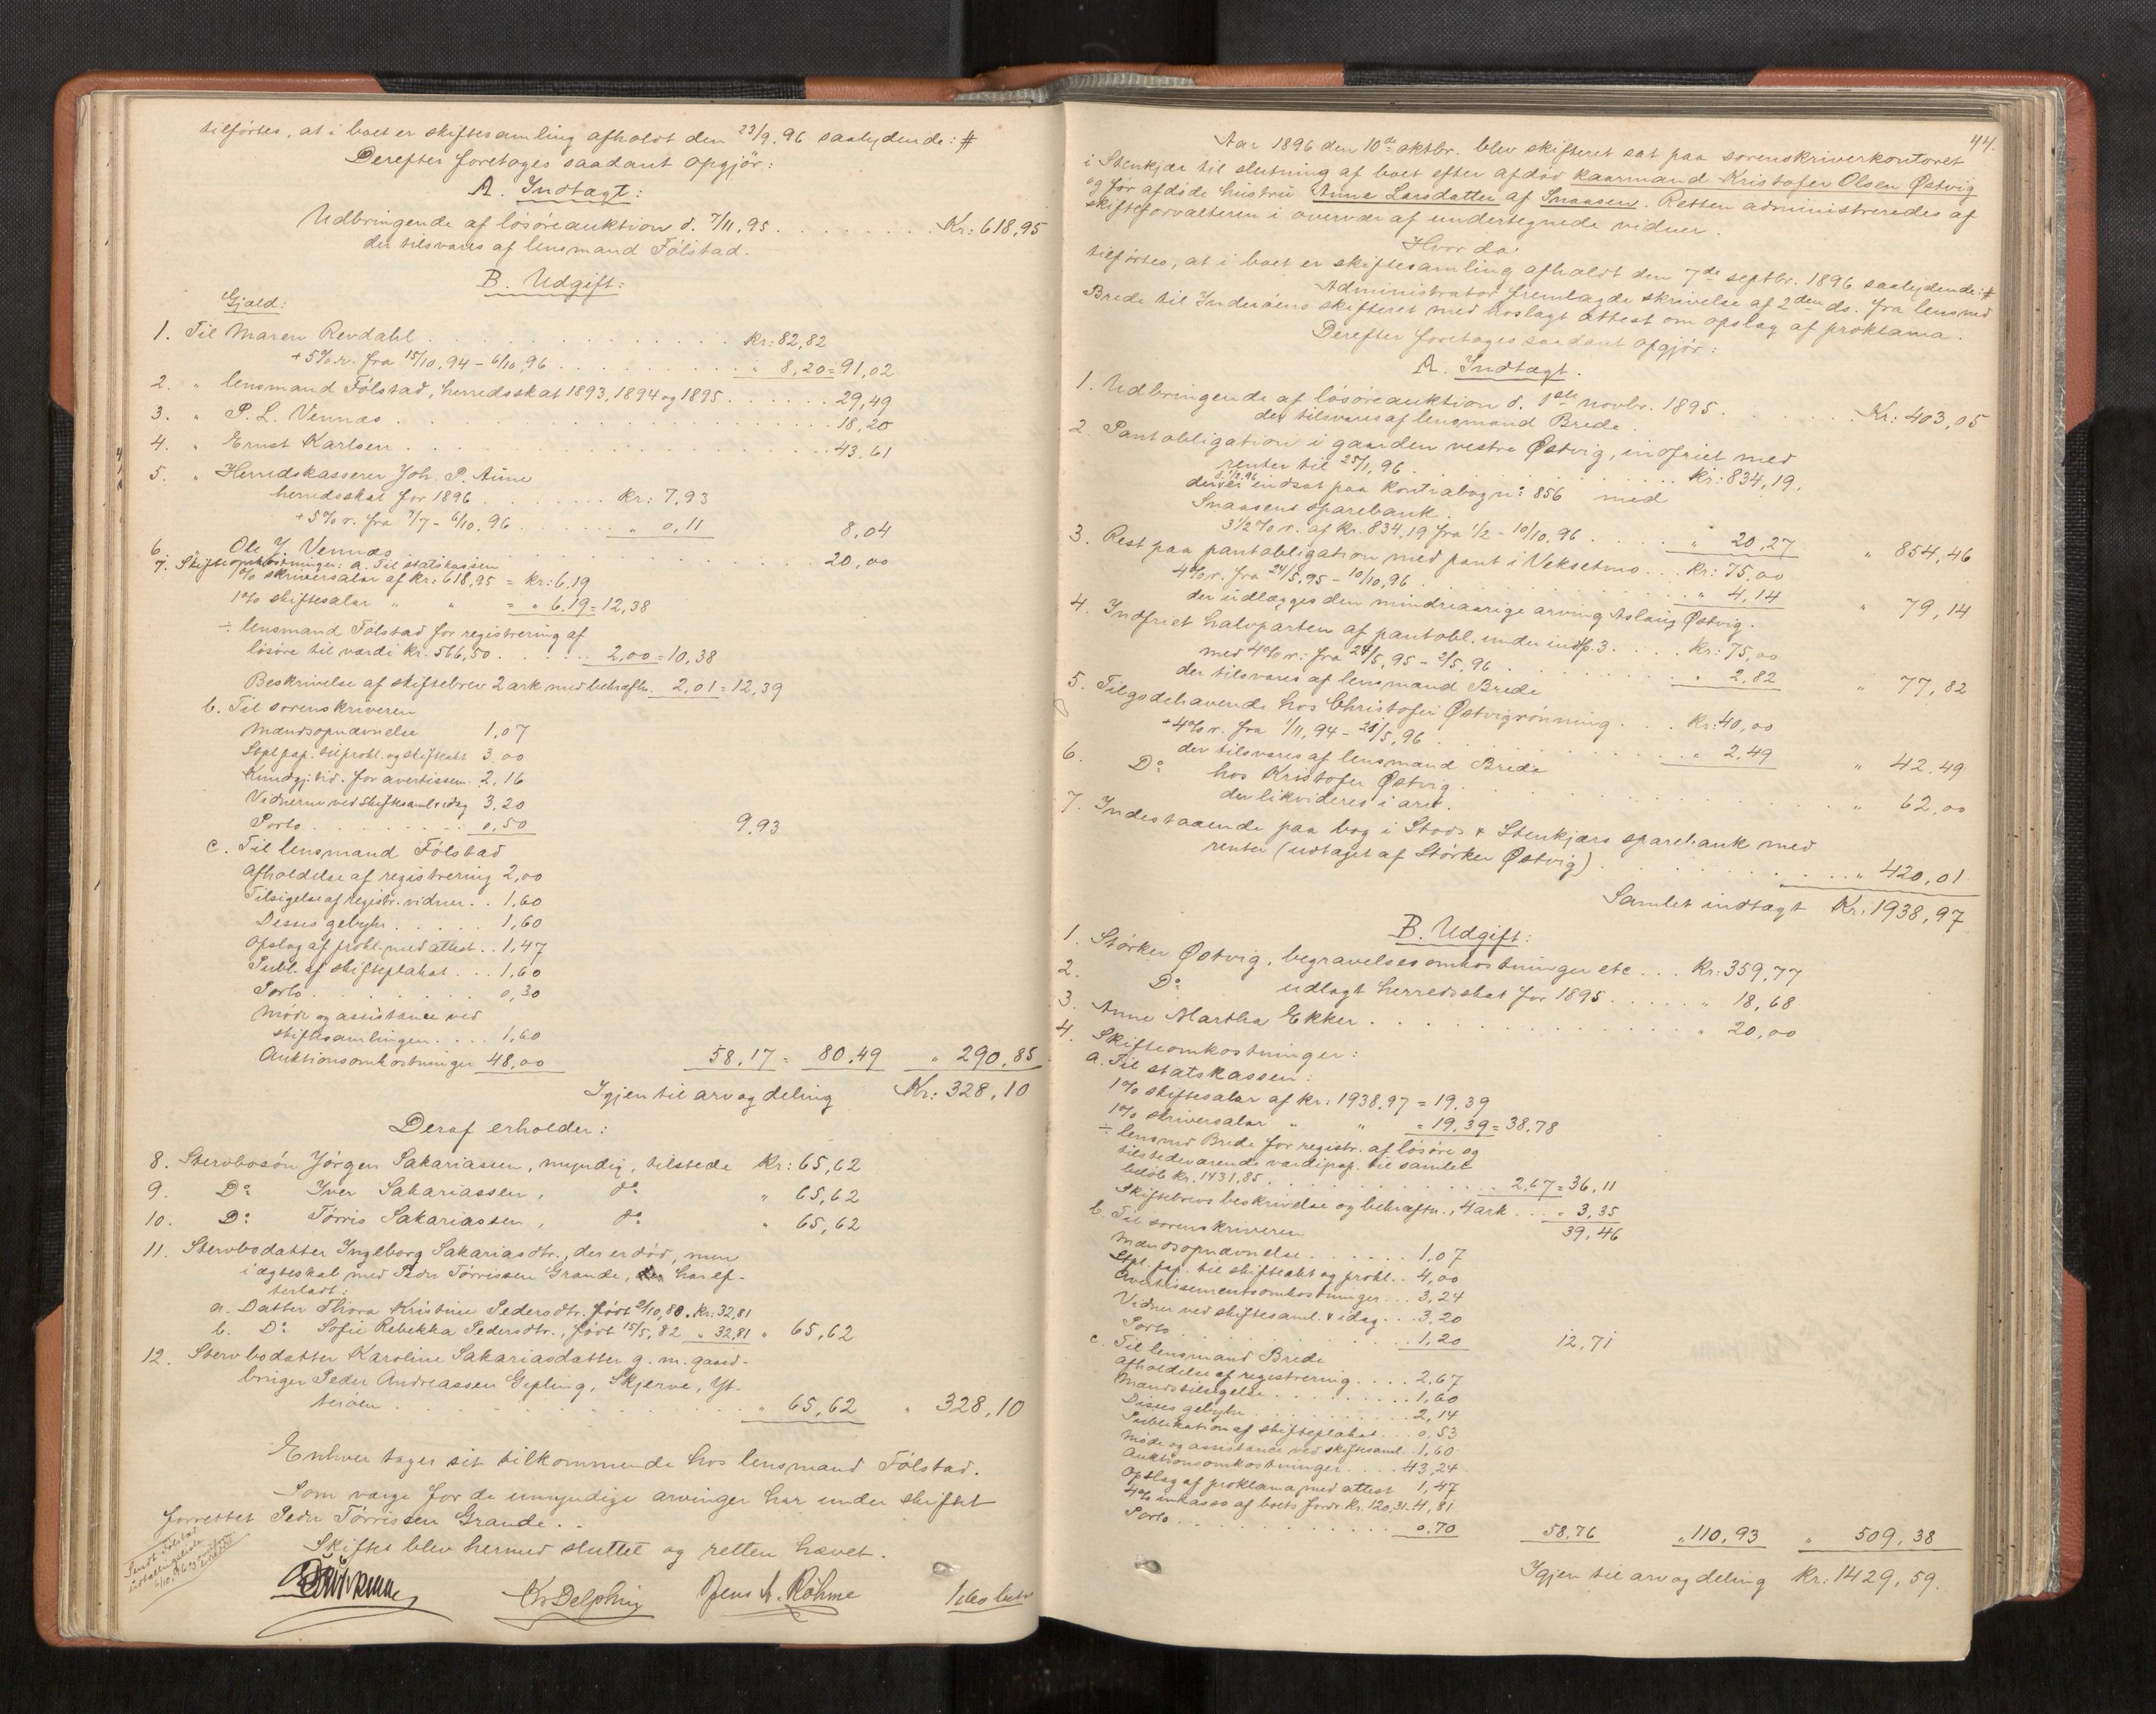 tilførtes, at i boet er skiftesamling afholdt den 23/9.96 saalydende: #
Derefter foretoges saadant opgjör:
A. Indtægt:
Udbringende af lösöreauktion d. 7/11.95 . . . . . . . . Kr: 618,95
der tilsvares af lensmand Fölstad.
B. Udgift:
Gjæld:
1. Til Maren Revdahl . . . . . . . . . . Kr: 82,82
+5% r. fra 15/10.94 - 6/10.96 . . . . . . . . " 8,20 = 91,02
2. " lensmand Fölstad, herredsskat 1893, 1894 og 1895 . . . . . . 29,49
3. " P. L. Vennæs . . . . . . . . . . 18,20
4. " Ernst Karlsen . . . . . . . . . . 43,61
5. " Herredskasserer Joh. P. Aune
herredsskat for 1896 . . . . . . Kr: 7,93
+5% r. fra 1/7 - 6/10.96 . . . . . . " 0,11 8,04
6. " Ole J. Vennæs . . . . . . . . . . 20,00
7. Skifteomkostninger: a. Til statskassen
1% skriversalar af kr: 618,95 = kr: 6,19
1% skiftesalar " " = " 6,19 = 12,38
÷ lensmand Fölstad for registrering af
lösöre til værdi kr. 566,50 . . . . . . 2,00 = 10,38
Beskrivelse af skiftebrev 2 ark med bekræftn. 2,01 = 12,39
b. Til sorenskriveren
Mandsopnævnelse 1,07
Stpl. pap. til prokl. og skifteakt 3,00
Kundgj. tid. for avertissem. 2,16
Vidnerne ved skiftesaml. & idag 3,20
Porto . . . . . . . . 0,50 9,93
c. Til lensmand Fölstad
Afholdelse af registrering 2,00
Tilsigelse af registr. vidner . . 1,60
Disses gebyhr . . . . . 1,60
Opslag af prokl. med attest . . 1,47
Publ. af skifteplakat . . . 1,60
Porto . . . . . . . . 0,30
Möde og assistance ved
skiftesamlingen . . . . 1,60
Auktionsomkostninger 48,00 58,17 = 80,49 " 290,85
Igjen til arv og deling Kr: 328,10
Deraf erholder:
8. Stervbosön Jörgen Sakariassen, myndig, tilstede Kr: 65,62
9. Do Iver Sakariassen, do " 65,62
10. Do Törris Sakariassen, do " 65,62
11. Stervbodatter Ingeborg Sakariasdtr., der er död, men
i ægteskab med Peder Törrissen Grande, har ef-
terladt:
a. Datter Thora Kristine Pedersdtr. født 2/10.80. Kr: 32,81
b. Do Sofie Rebekka Pedersdtr., født 15/5.82 " 32,81 " 65,62
12. Stervbodatter Karoline Sakariasdatter g. m. gaard-
bruger Peder Andreassen Gipling, Skjerve, Yt-
teröen . . . . . . . . . . " 65,62 " 328,10
Enhver tager sit tilkommende hos lensmand Fölstad.
Som værge for de umyndige arvinger har under skiftet
forrettet Peder Törrissen Grande.
Skiftet blev hermed sluttet og retten hævet.
Sendt Fölstad
udlodningsliste
Chr Delphin Jens A. Röhme
44.
Aar 1896 den 10de oktbr. blev skifteret sat paa sorenskriverkontoret
i Stenkjær til slutning af boet efter afdød kaarmand Kristofer Olsen Østvig
og før afdøde hustru Anne Larsdatter af Snaasen. Retten administreredes af
skifteforvalteren i overvær af undertegnede vidner.
Hvor da
tilførtes, at i boet er skiftesamling afholdt den 7de septbr. 1896 saalydende: #
Administrator fremlagde skrivelse af 2den ds. fra lensmd
Brede til Inderöens skifteret med hoslagt attest om opslag af proklama.
Derefter foretoges saadant opgjör:
A. Indtægt.
1. Udbringende af lösöreauktion d. 1ste novbr. 1895 . . . . . Kr: 403,05
der tilsvares af lensmand Brede.
2. Pantobligation i gaarden vestre Østvig, indfriet med
renter til 25/1.96 . . . . . . . . . . Kr: 834,19.
der er d. 1/2.96 indsat paa kontrabog no: 856 med
Snaasens sparebank.
3 1/2% r. af kr. 834,19 fra 1/2 - 10/10.96 . . . . . " 20,27 " 854,46
3. Rest paa pantobligation med pant i Veksetmo . . . Kr: 75,00
4% r. fra 24/5.95 - 10/10.96 . . . . . . . . " 4,14 " 79,14
der udlægges den mindreaarige arving Aslaug Østvig.
4. Indfriet halvparten af pantobl. under indt. 3 . . . . Kr: 75,00
med 4% r. fra 24/5.95 - 2/5.96 . . . . . . . " 2,82 " 77,82
der tilsvares af lensmand Brede
5. Tilgodehavende hos Christofer Østvigrönning . . . Kr: 40,00
+4% r. fra 1/11.94 - 20/5.96 . . . . . . . . " 2,49 " 42,49
der tilsvares af lensmand Brede
6. Do hos Kristofer Østvig . . . . . . . . . . " 62,00
der likvideres i arv.
7. Indestaaende paa bog i Stods & Stenkjærs sparebank med
renter (udtaget af Störker Østvig) . . . . . . . . . " 420,01
Samlet indtægt Kr: 1938,97
B. Udgift:
1. Störker Østvig, begravelsesomkostninger etc . . . Kr: 359,77
2. Do udlagt herredsskat for 1895 . . . . . . " 18,68
3. Anne Martha Ekker . . . . . . . . . . " 20,00
4. Skifteomkostninger:
a. Til statskassen:
1% skiftesalar af kr: 1938,97 = 19,39
1% skriversalar " " = 19,39 = 38,78
÷ lensmd Brede for registr. af lösöre og
tilstedeværende værdipap. til samlet
belöb kr. 1431,85 . . . . . . . . . . 2,67 = 36,11
Skiftebrevs beskrivelse og bekræftn., 4 ark . . . . " 3,35
39,46
b. Til sorenskriveren
Mandsopnævnelse . . . . . . 1,07
Stpl. pap. til skifteakt og prokl. . . 4,00
Avertissementsomkostninger . . . 3,24
Vidner ved skiftesaml. & idag . . . 3,20
Porto . . . . . . . . . . 1,20 12,71
c. Til lensmand Brede
Afholdelse af registrering . . . . 2,67
Mandstilsigelse . . . . . . . . 1,60
Disses gebyhr . . . . . . . . 2,14
Publikation af skifteplakat . . . 0,53
Möde og assistance ved skiftesaml. . . 1,60
Auktionsomkostninger . . . . 43,24
Opslag af proklama med attest 1,47
4% inkasso af boets fordr. kr. 120,31. 4,81
Porto . . . . . . . . . . 0,70 58,76 " 110,93 " 509,38
Igjen til arv og deling Kr: 1429,59.